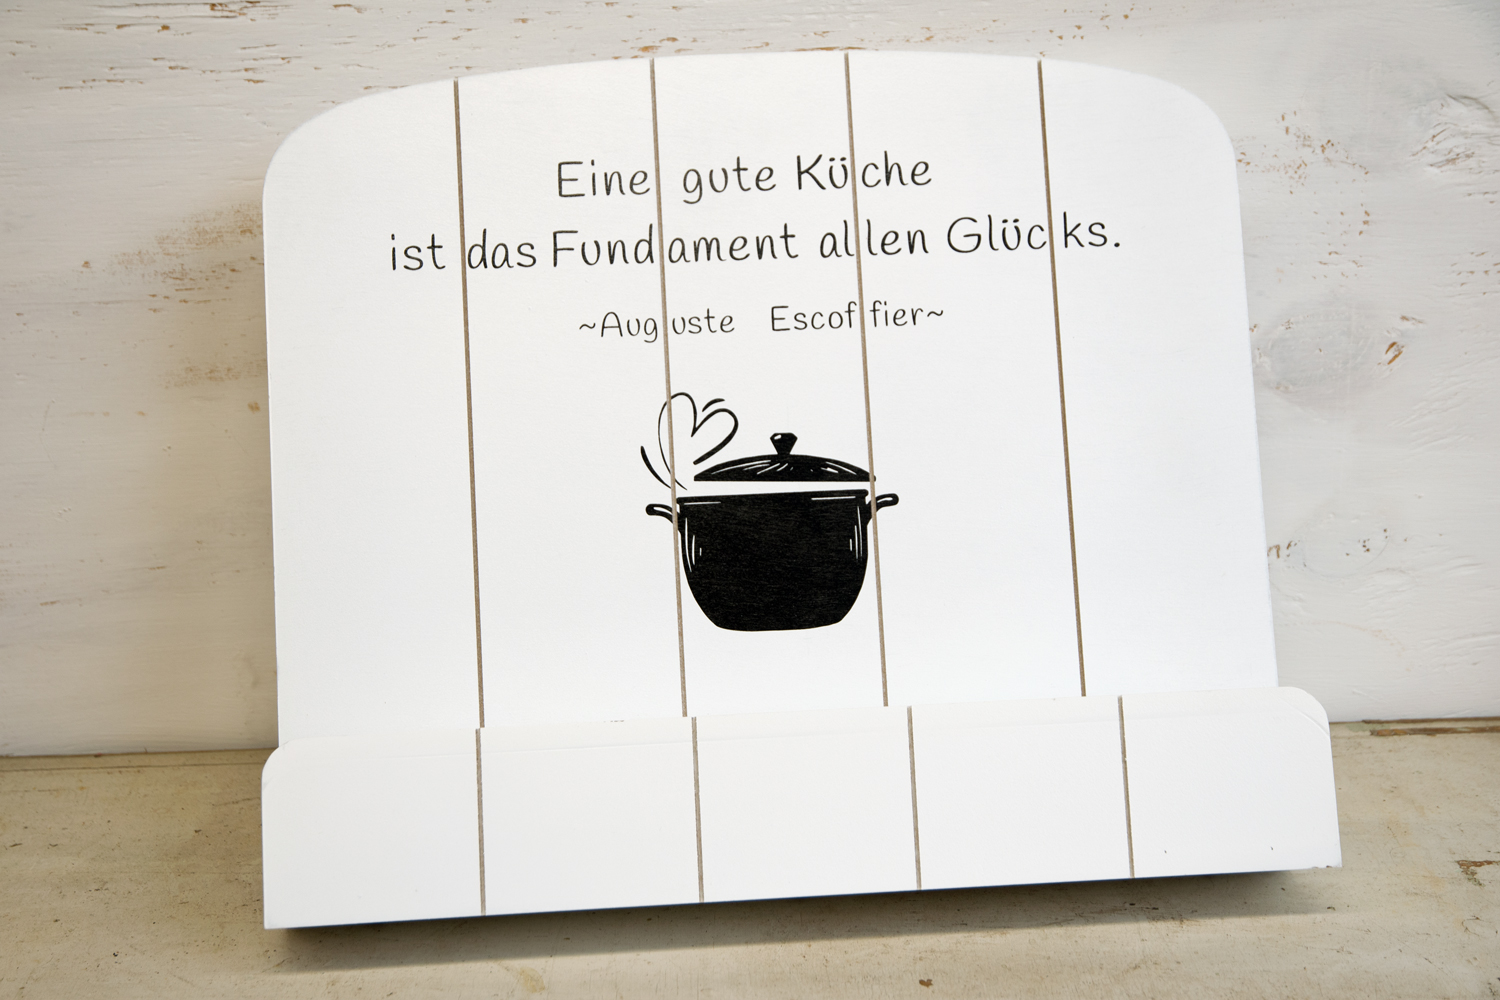 Eine gute Küche
ist das Fundament allen Glücks.
~Auguste Escoffier~